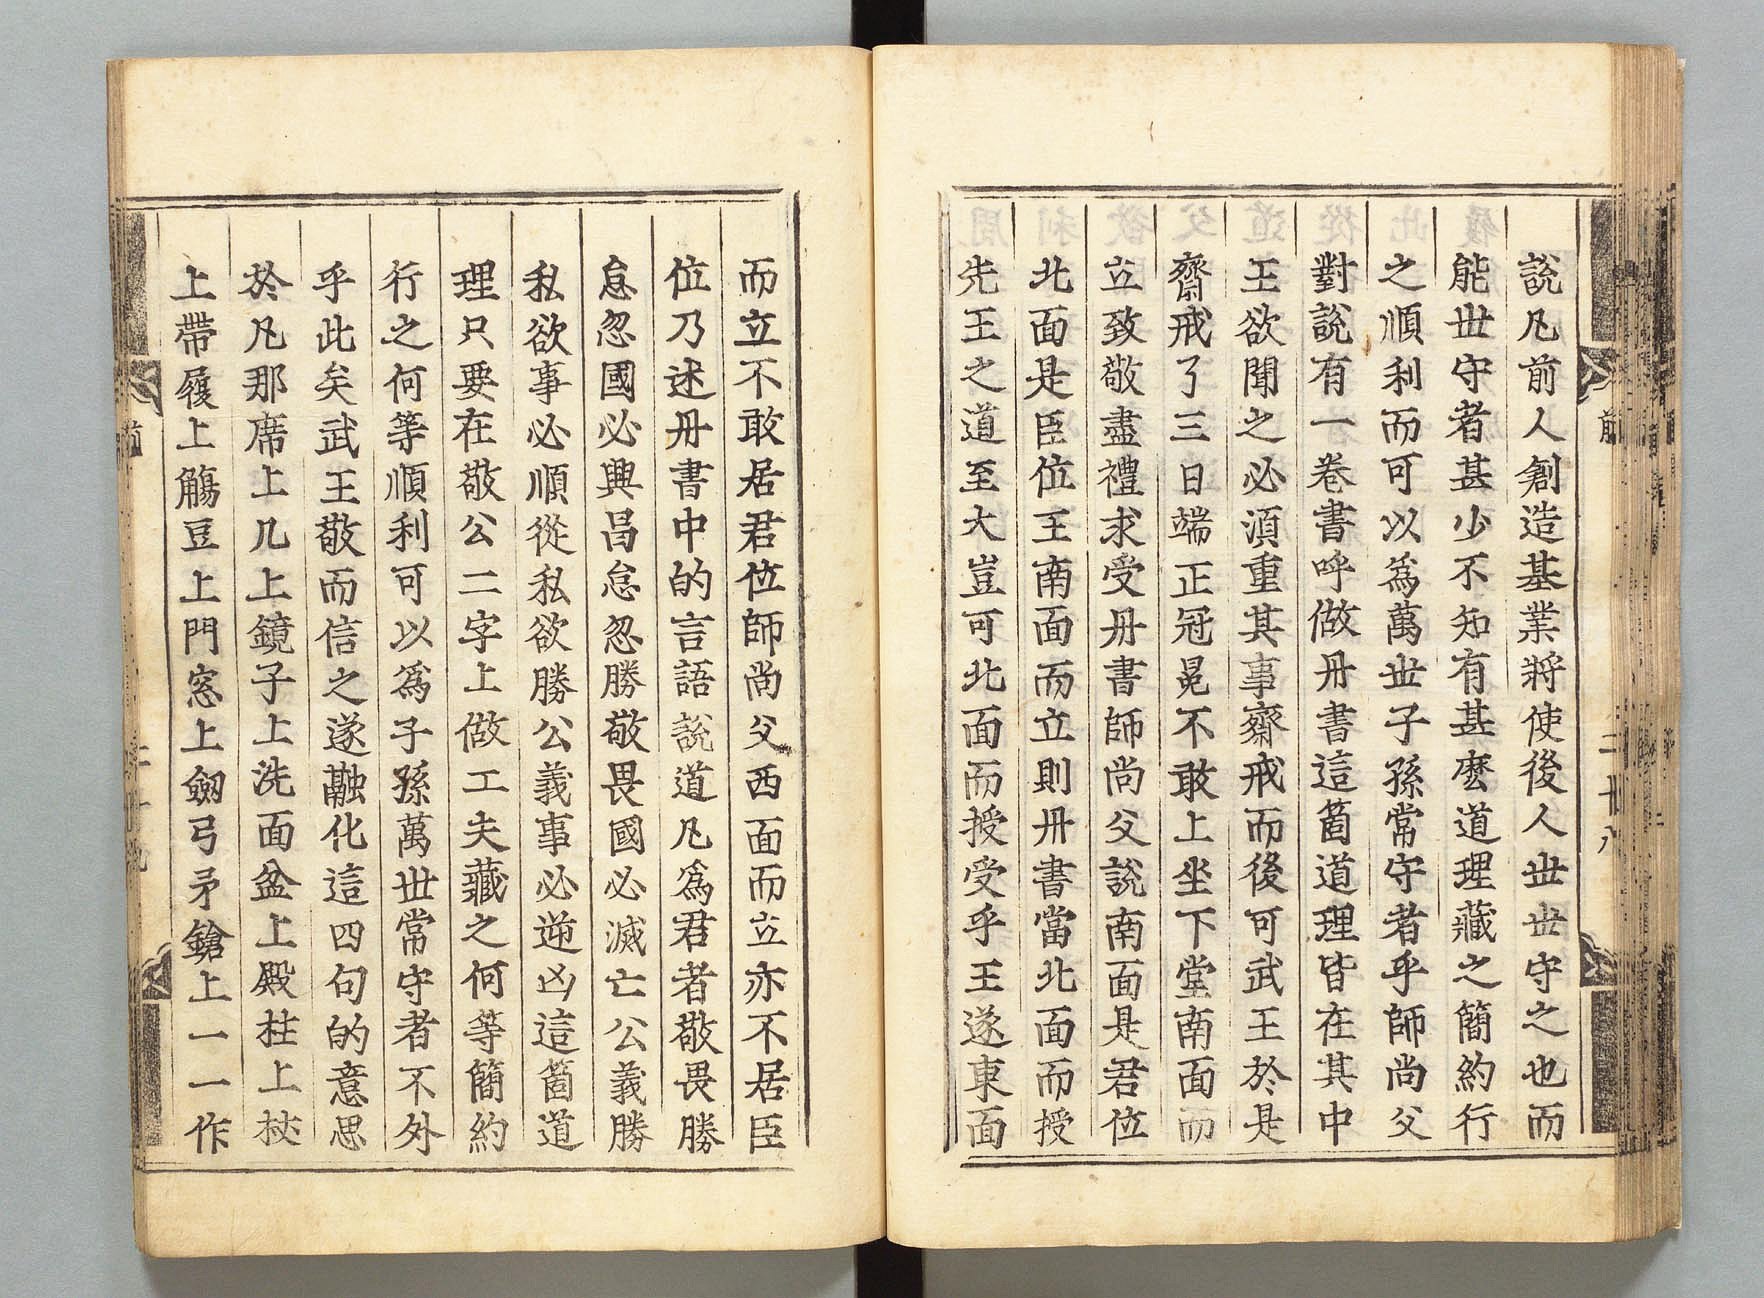 說凡前人創造基業將使後人丗丗守之也而
能丗守者甚少不知有甚麽道理藏之簡約行
之順利而可以爲萬丗子孫常守者乎師尙父
對說有一卷書呼做丹書這箇道理皆在其中
王欲聞之必湏重其事齋戒而後可武王於是
齋戒了三日端正冠冕不敢上坐下堂南面而
立致敬盡禮求受丹書師尙父說南面是君位
北面是臣位王南面而立則丹書當北面而授
先王之道至大豈可北面而授受乎王遂東面
前
二十八
而立不敢居君位師尙父西面而立亦不居臣
位乃述丹書中的言語說道凡爲君者敬畏勝
怠忽國必興昌怠忽勝敬畏國必滅亡公義勝
私欲事必順從私欲勝公義事必逆凶這箇道
理只要在敬公二字上做工夫藏之何等簡約
行之何等順利可以爲子孫萬丗常守者不外
乎此矣武王敬而信之遂融化這四句的意思
於凡那席上几上鏡子上洗面盆上殿柱上杖
上帶履上觴豆上門窓上劒弓矛鎗上一一作
前